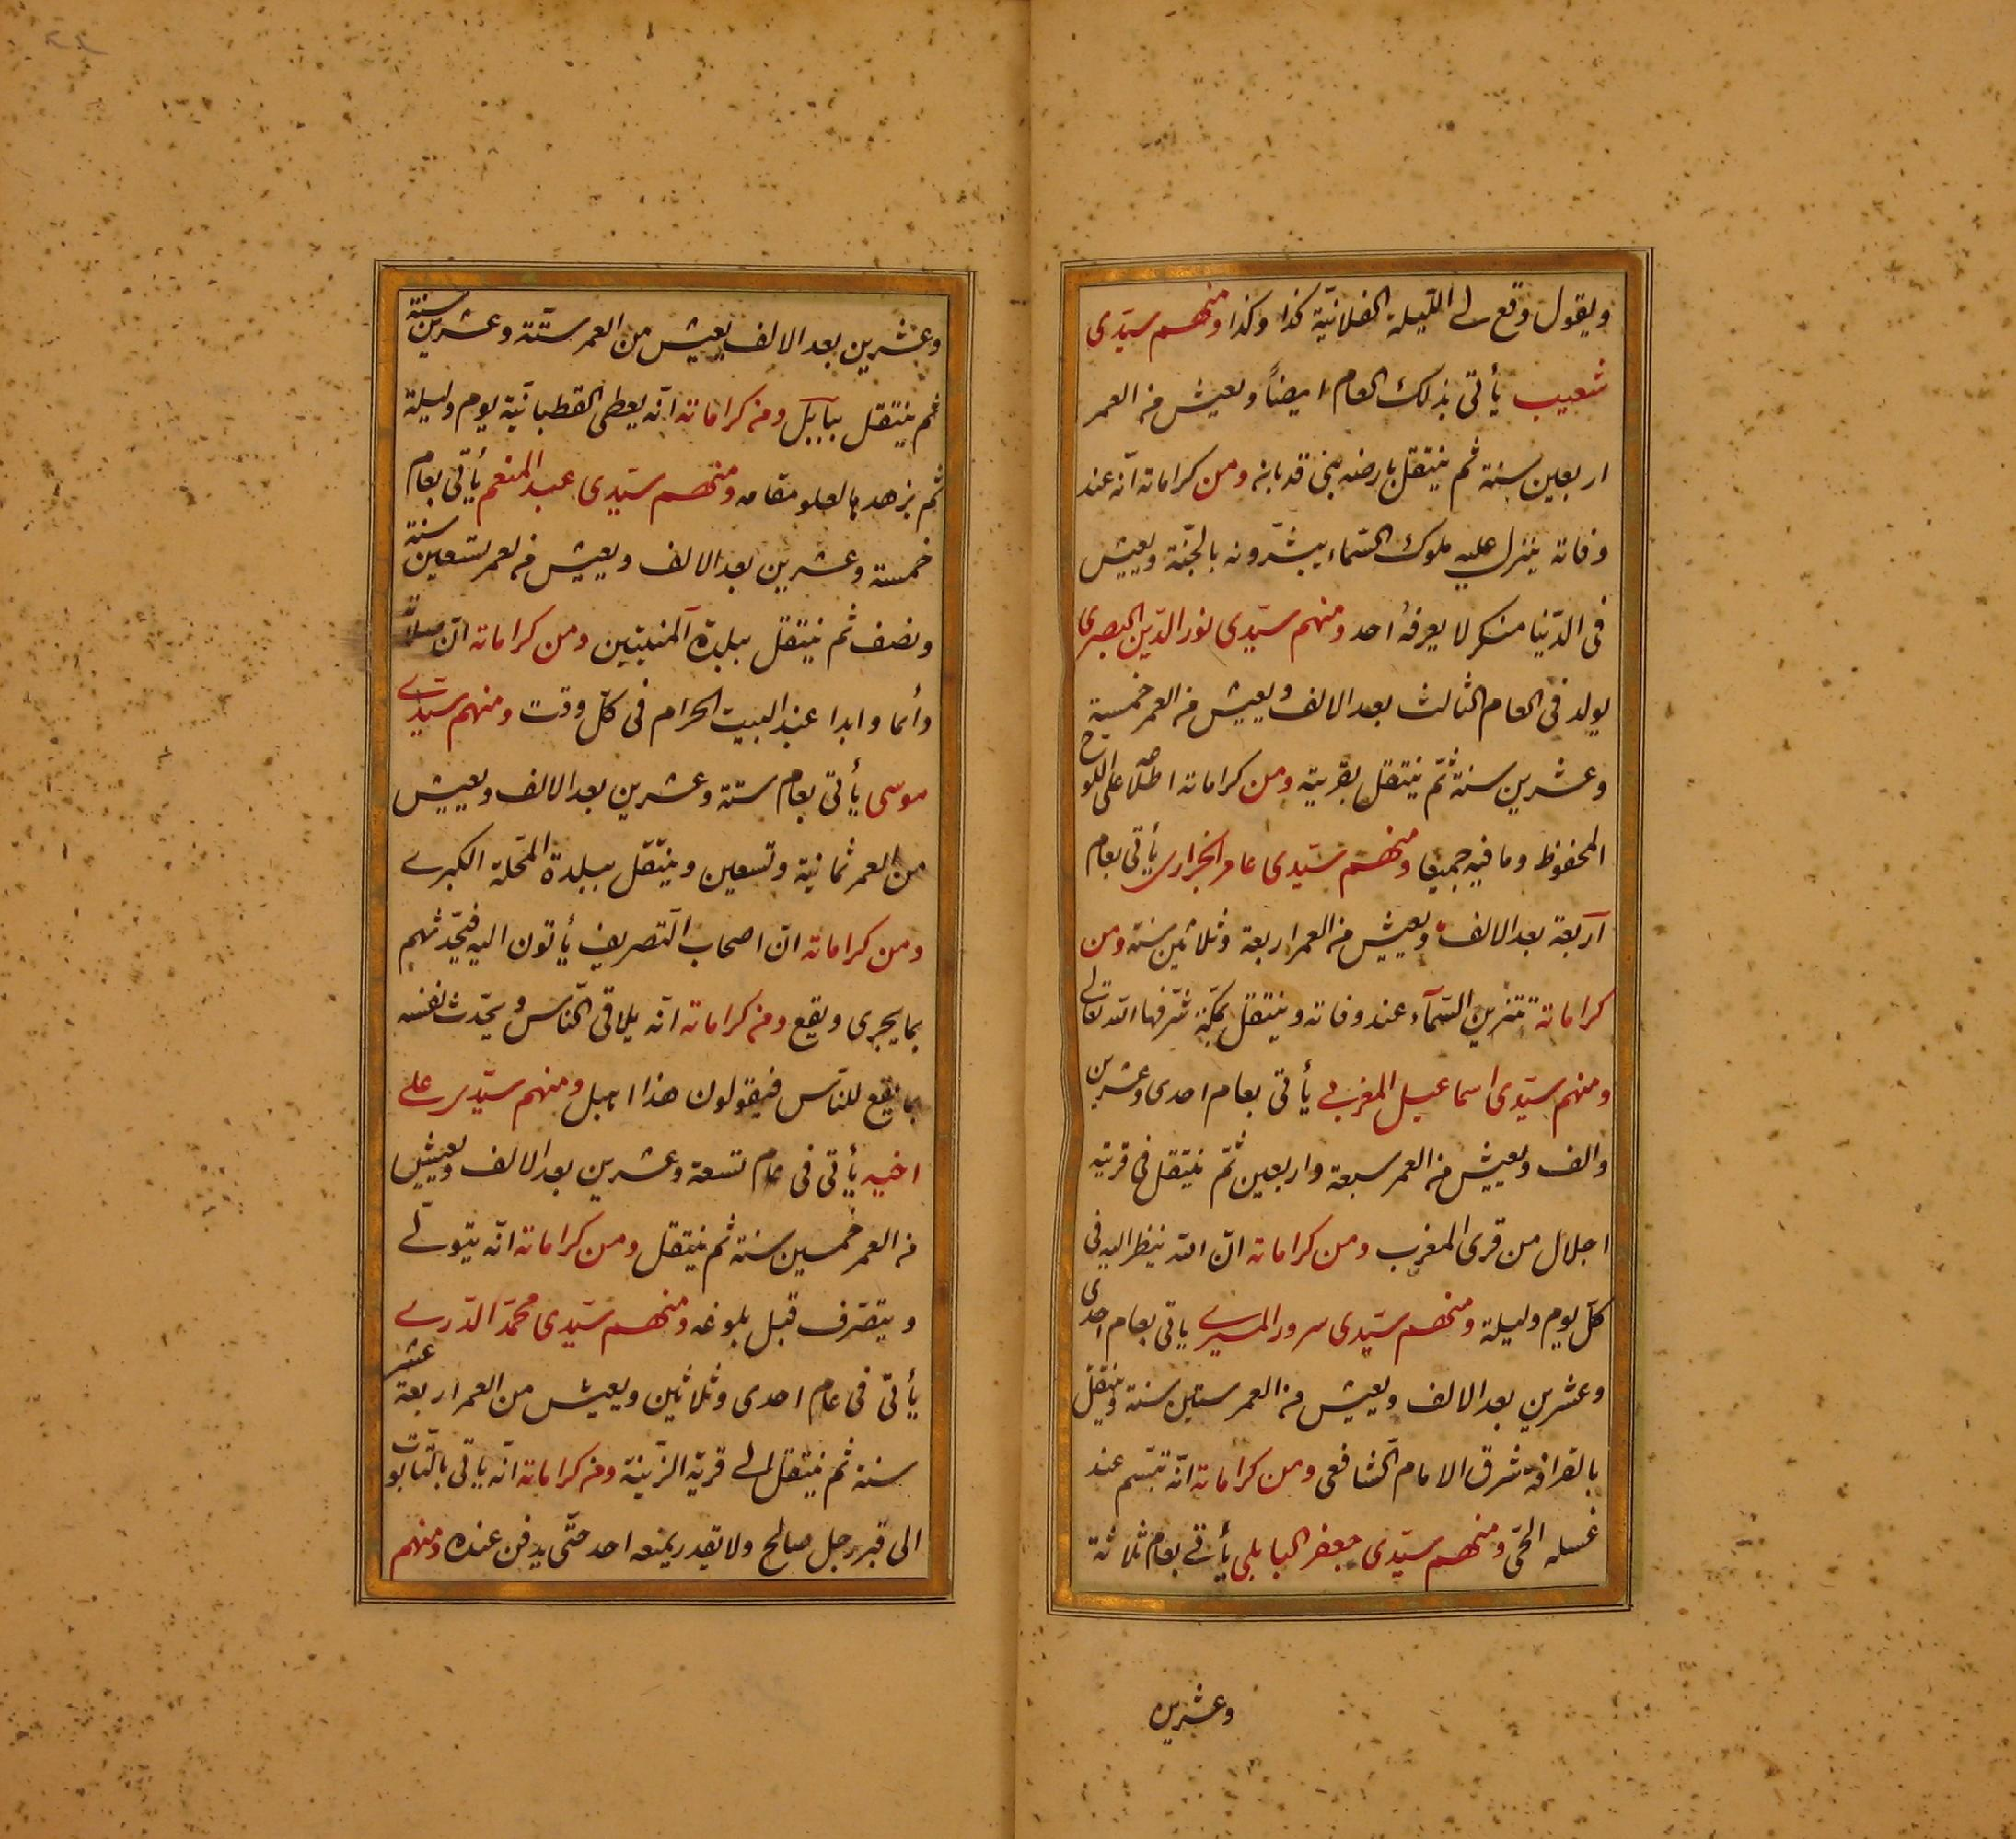 ويقول وقع لي الليلة الفلانيّة كذا وكذا ومنهم سيّدى
شعيب يأتى بذلك العام ايضاً ويعيش من العمر
اربعين سنة ثم ينتقل بارض بنى ومن كراماته انّه عند
وفاته ينزل عليه ملوك السّماء يبشّرونه بالجنّة ويعيش
فى الدّنيا منكر لا يعرفهُ احد ومنهم سيّدى نور الدّين البصرى
يولد فى العام الثالث بعد الالف ويعيش من العمر خمسة
وعشرين سنة ثمّ ينتقل بقرية ومن كراماته اطّلاعه على اللوح
المحفوظ وما فيه جميعا ومنهم سيّدى عامر الجزارى يأتى بعام
اربعة بعد الالف ويعيش من العمر اربعة وثلاثين سنة ومن
كراماته تتزين السّمآء عند وفاته وينتقل بمكّة شرّفها الله تعالى
ومنهم سيّدى اسماعيل المغربى يأتى بعام احدى وعشرين
والف ويعيش من العمر سبعة واربعين ثمّ ينتقل فى قرية
اجلال من قرى المغرب ومن كراماته انّ الله ينظر اليه فى
كلّ يوم وليلة ومنهم سيّدى سرور المسيرى ياتى بعام احدى
وعشرين بعد الالف ويعيش من العمر ستين سنة وينتقل
بالقرافة شرق الامام الشافعى ومن كراماته انّه تبسّم عند
غسله الحىّ ومنهم سيّدى جعفر البابلى يأتى بعام ثلاثة
وعشرين
وعشرين بعد الالف يعيش من العمر ستّة وعشرين سنة
ثم ينتقل ببابل ومن كراماته انّه يعطى القطبانيّة يوم وليلة
ثم يزهد بالعلو مقامه ومنهم سيّدى عبد المنعم يأتى بعام
خمسة وعشرين بعد الالف ويعيش من لعمر تسعين سنة
ونصف ثم ينتقل ببلدة ومن كراماته انّ
دائما وابدا عند البيت الحرام فى كلّ وقت ومنهم سيّدى
موسى يأتى بعام ستة وعشرين بعد الالف ويعيش
من العمر ثمانية وتسعين وينتقل ببلدة المحلة الكبرى
ومن كراماته انّ اصحاب التصريف يأتون اليه فيحدّثهم
بما يجرى ويقع ومن كراماته انّه يلاقى النّاس ويحدّث نفسه
بما يقع للنّاس فيقولون هذا اهبل ومنهم سيّدى على
اخيه يأتى فى عام تسعة وعشرين بعد الالف ويعيش
من العمر خمسين سنة ثم ينتقل ومن كراماته انّه يتولّى
ويتصرّف قبل بلوغه ومنهم سيّدى محمّد الدّرى
يأتى فى عام احدى وثلاثين ويعيش من العمر اربعة عشر
سنة ثم ينتقل الى قرية الزّينة ومن كراماته انّه ياتى بالتّابوت
الى قبر رجل صالح ولا يقدر يمنعه احد حتّى يدفن عنده ومنهم